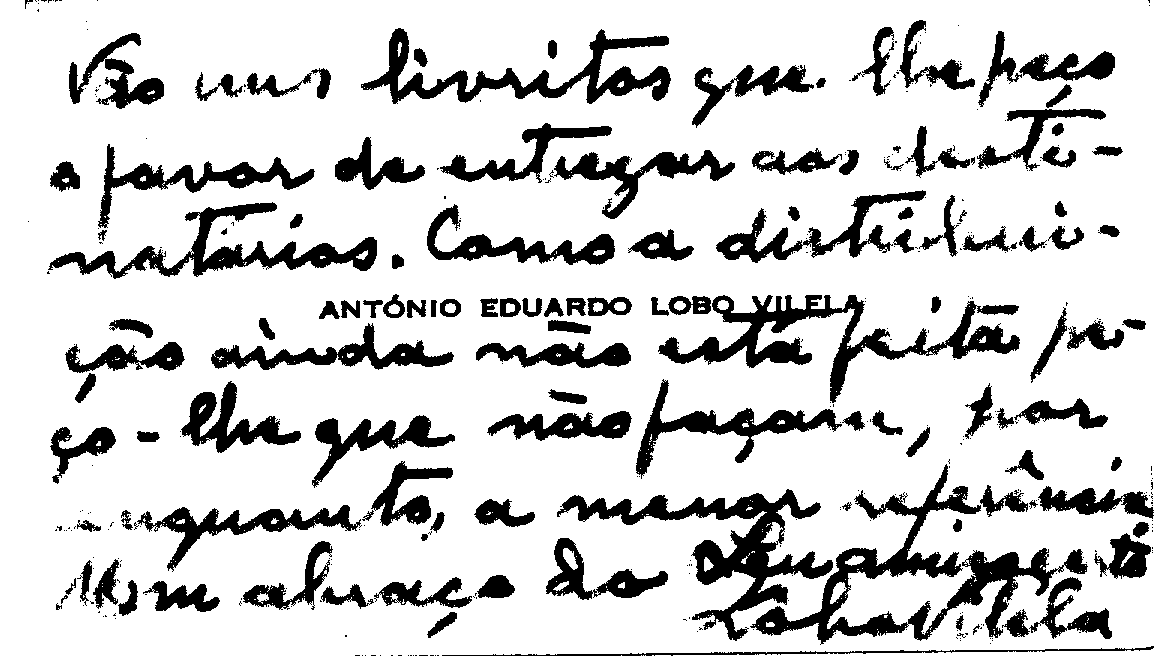 Vão uns livritos que lhe peço
o favor de entregar aos desti-
natários. Como a distribui-
ANTÓNIO EDUARDO LOBO VILELA
ção ainda não está feita pe-
ço-lhe que não façam, por
enquanto, a menor referência
Um abraço do seu amigo grato
Lobo Vilela